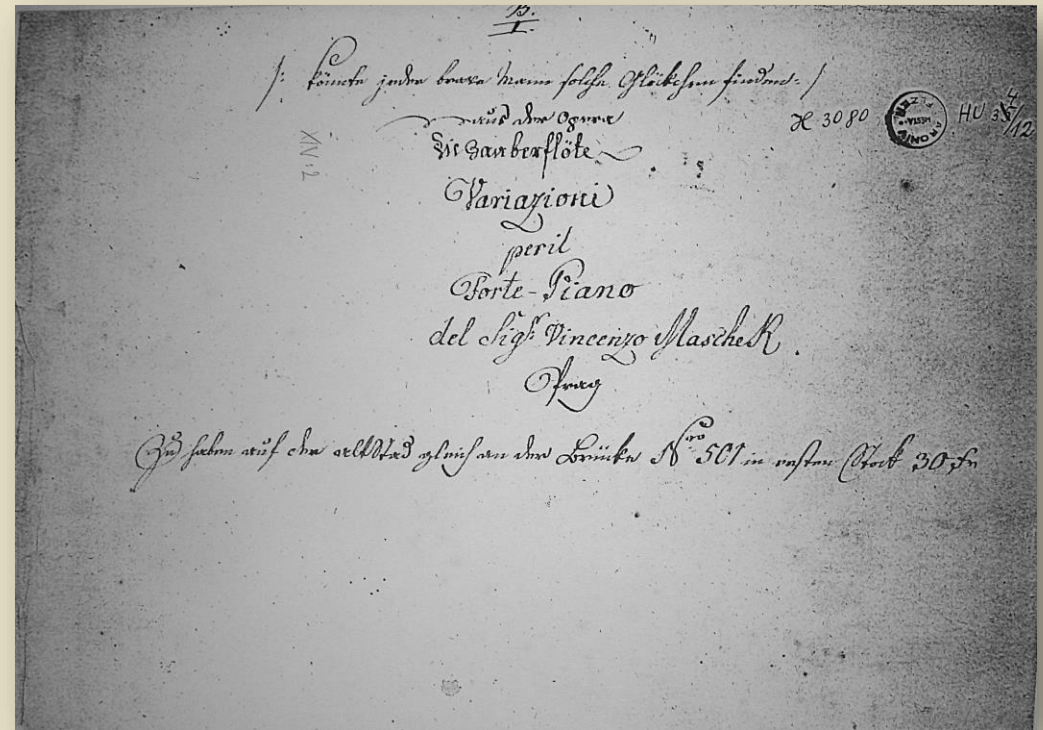 B.
I.
/: könnte jeder brave Mann solche Glöckchen finden: /
aus der Opera
Die Zauberflöte
Variazioni
per il
Forte-Piano
del Sigr Vincenzo Maschek.
Prag
Zu haben auf der altStad gleich an der Brücke Nro 501 in ersten Stock 30 Xr
H 3080
HU 3
4/12
XIV:2